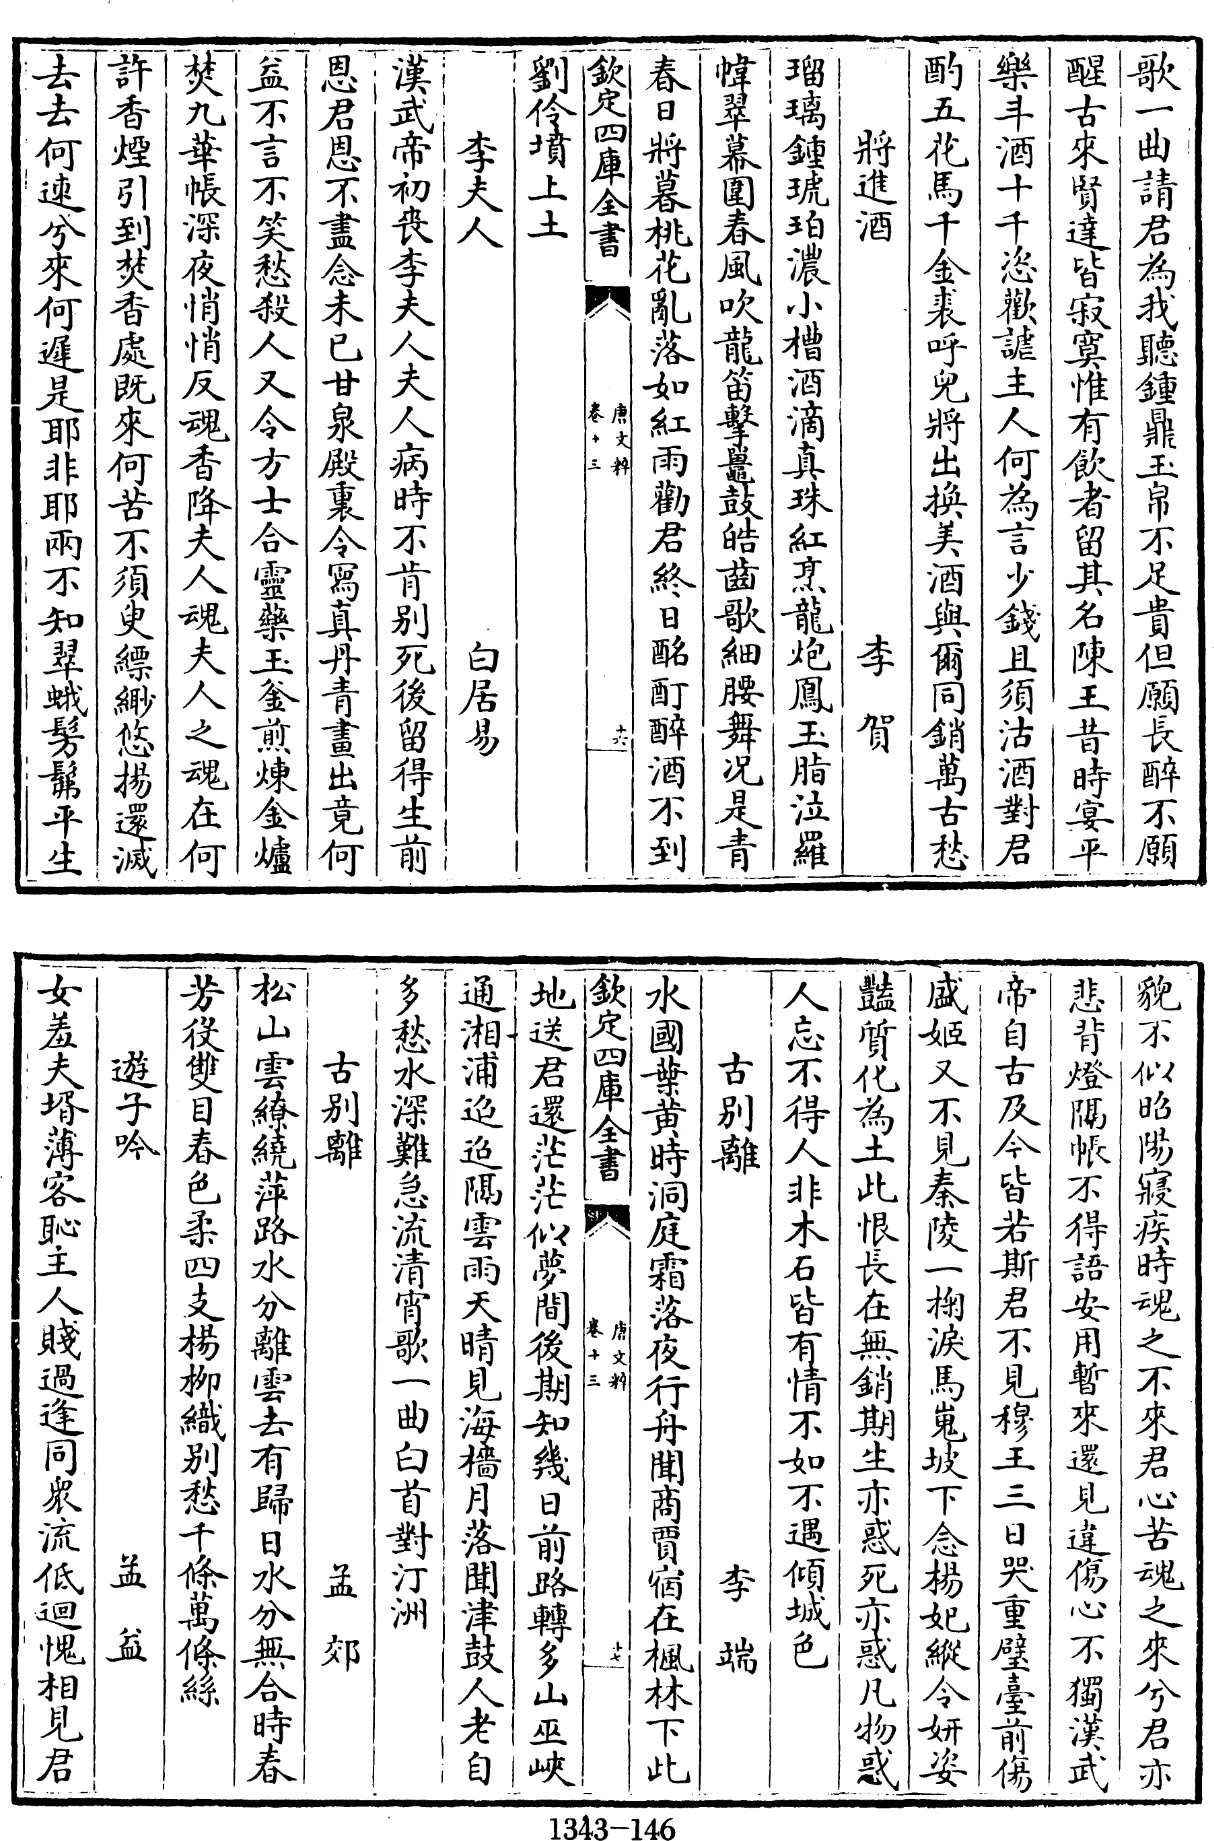 歌一曲請君為我聽鍾鼎玉帛不足貴但願長醉不願
醒古來賢達皆寂寞惟有飲者留其名陳王昔時宴平
樂斗酒十千恣歡謔主人何為言少錢且須沽酒對君
酌五花馬千金裘呼兒將出換美酒與爾同銷萬古愁
將進酒 李賀
瑠璃鍾琥珀濃小槽酒滴真珠紅烹龍炮鳳玉脂泣羅
幃翠幕圍春風吹龍笛擊鼉鼓皓齒歌細腰舞况是青
春日將暮桃花亂落如紅雨勸君終日酩酊醉酒不到
欽定四庫全書 唐文粹 卷十三 十六
劉伶墳上土
李夫人 白居易
漢武帝初喪李夫人夫人病時不肯别死後留得生前
恩君恩不盡念未已甘泉殿裏令寫真丹青畫出竟何
益不言不笑愁殺人又令方士合靈藥玉釜煎煉金爐
焚九華帳深夜悄悄反魂香降夫人魂夫人之魂在何
許香煙引到焚香處既來何苦不須臾縹緲悠揚還滅
去去何速兮來何遲是耶非耶兩不知翠蛾髣髴平生
貌不似昭陽寢疾時魂之不來君心苦魂之來兮君亦
悲背燈隔帳不得語安用暫來還見違傷心不獨漢武
帝自古及今皆若斯君不見穆王三日哭重璧臺前傷
盛姬又不見秦陵一掬淚馬嵬坡下念楊妃縱令妍姿
豔質化為土此恨長在無銷期生亦惑死亦惑凡物惑
人忘不得人非木石皆有情不如不遇傾城色
古别離 李端
水國葉黄時洞庭霜落夜行舟聞商賈宿在楓林下此
欽定四庫全書 唐文粹 卷十三 十七
地送君還茫茫似夢間後期知幾日前路轉多山巫峽
通湘浦迢迢隔雲雨天晴見海檣月落聞津鼓人老自
多愁水深難急流清宵歌一曲白首對汀洲
古别離 孟郊
松山雲繚繞萍路水分離雲去有歸日水分無合時春
芳役雙目春色柔四支楊柳織别愁千條萬條絲
遊子吟 孟益
女羞夫壻薄客恥主人賤過逢同衆流低迴愧相見君
1343-146